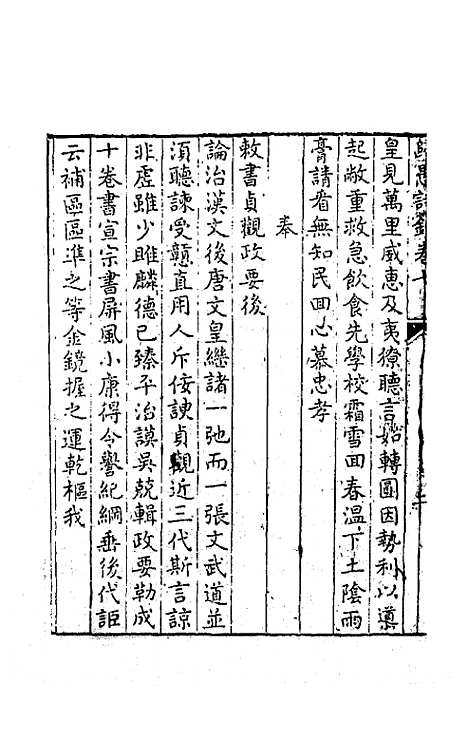 皇見萬里威惠及夷獠聽言始轉圜因勢利以導
起敝重救急飲食先學校霜雪回春溫下土陰雨
膏請看無知民回心慕忠孝
奉
敕書貞觀政要後
論治漢文後唐文皇繼諸一弛而一張文武道並
須聽諫受戇直用人斥佞諛貞觀近三代斯言諒
非虛雖少雎麟德已臻平治謨吳兢輯政要勒成
十卷書宣宗書屏風小康得令譽紀綱垂後代詎
云補區區準之等金鏡握之運乾樞我